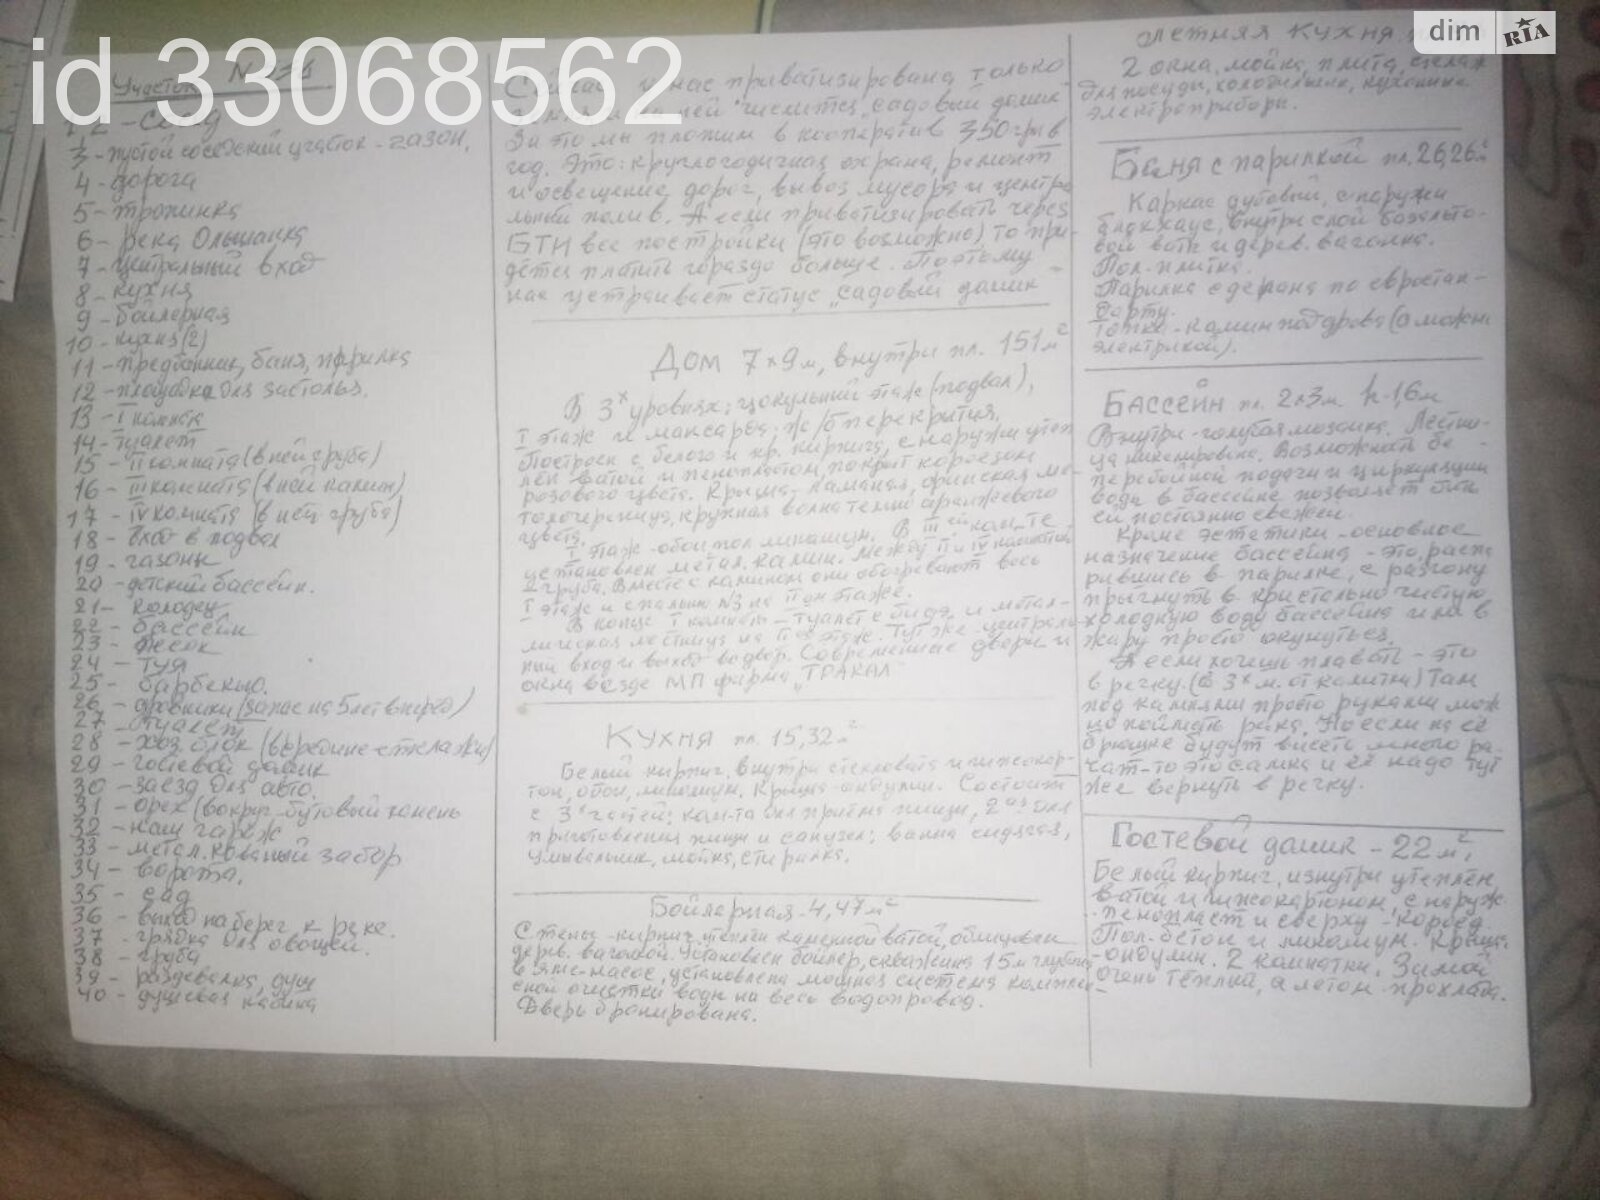 id 33068562
dim RIA
Участок N
1,2 -
3 - пустой соседский участок - газон.
4 - дорога
5 - тропинка
6 - река Ольшанка
7 - центральный вход
8 - кухня
9 - бойлерная
10 - кухня (2)
11 - предбанник, баня, парилка
12 - площадка для застольз.
13 - I комната
14 - туалет
15 - II комната (в ней груба)
16 - III комната (в ней камин)
17 - IV комната (в ней груба)
18 - вход в подвал
19 - газоны
20 - детский бассейн.
21 - колодец
22 - бассейн
23 - песок
24 - туя
25 - барбекью.
26 - дровники (запас на 5 лет вперёд)
27 - туалет
28 - хоз. блок (в середине - стелажи)
29 - гостевой домик
30 - заезд для авто.
31 - орех (вокруг - бутовый камень
32 - наш гараж
33 - метал. кованый забор
34 - ворота.
35 - сад
36 - выход на берег к речке.
37 - грядка для овощей.
38 - груба
39 - раздевалка, душ
40 - душевая кабина
у нас приватизирована только
на ней числится „садовый домик"
За это мы платим в кооператив 350 грн в
год. Это: круглогодичная охрана, ремонт
и освещение дорог, вывоз мусора и центра
льный полив. А если приватизировать через
БТИ все постройки (это возможно) то при-
дётся платить гораздо больше. Поэтому
нас устраивает статус „садовый домик"
Дом 7х9 м, внутри пл. 151 м²
В 3х уровнях: цокульный этаж (подвал),
I этаж и мансарда. ж/б перекрития.
Построен с белого и кр. кирпича, с наружи утеп
лен ватой и пенопластом, покрыт короедом
розового цвета. Крыша - ламаная, финская ме-
талочерепица, крупная волна темно оранжевого
цвета.
I этаж - обои пол линолиум. В IIIей ком-те
установлен метал. камин. Между II и IV комнатой
груба. Вместе с камином они обогревают весь
I этаж и спальню №3 на II ом этаже.
В конце I комнаты - туалет с бидэ и метал-
лическая лестница на II ой этаж. Тут же централь-
ный вход и выход во двор. Современные двери и
окна везде МП фирма „ТРАКАЛ"
Кухня пл. 15,32 м²
Белый кирпич, внутри стекловата и гипсокар-
тон, обои, линолиум. Крыша - ондулин. Состоит
с 3х частей: ком-та для приёма пищи, 2ая для
приготовления пищи и санузел: ванна сидячая,
умывальник, мойка, стиралка.
Бойлерная - 4,47 м²
Стены - кирпич утеплён каменной ватой, облицован
дерев. вагонкой. Установлен бойлер, скважина 15 м глубина
в ней насос, установлена мощная система комплек
сной очистки воды на весь водопровод.
Дверь бронирована.
летняя кухня
2 окна, мойка, плита,
для посуды, холодильник, кухонные
электроприборы.
Баня с парилкой пл. 26,26 м²
Каркас дубовый, с наружи
блокхаус, внутри слой базальто-
вой ваты и дерев. вагонка.
Пол - плитка.
Парилка сделана по евростан-
дарту.
Топка - камин под дрова (а можно
электрикой).
Бассейн пл. 2х3 м. h - 1,6 м
Внутри - голубая мозаика. Лестни-
ца никелирована. Возможность бе -
перебойной подачи и циркуляции
воды в бассейне позволяет быть
ей постоянно свежей.
Кроме эстетики - основное
назначение бассейна - это, распа
рившись в парилке, с разгону
прыгнуть в кристально чистую
холодную воду бассейна или в
жару просто окунуться.
А если хочешь плавать - это
в речку. (в 3х м. от калитки) Там
под камнями просто руками мож
но поймать рака. Но если на её
брюшке будут висеть много ра-
чат - то это самка и её надо тут
же вернуть в речку.
Гостевой домик - 22 м².
Белый кирпич, изнутри утеплён
ватой и гипсокартоном, с наруж-
- пенопласт и сверху - „короед
Пол - бетон и линолиум. Крыша-
- ондулин. 2 комнатки. Зимой
очень тёплый, а летом прохлада.